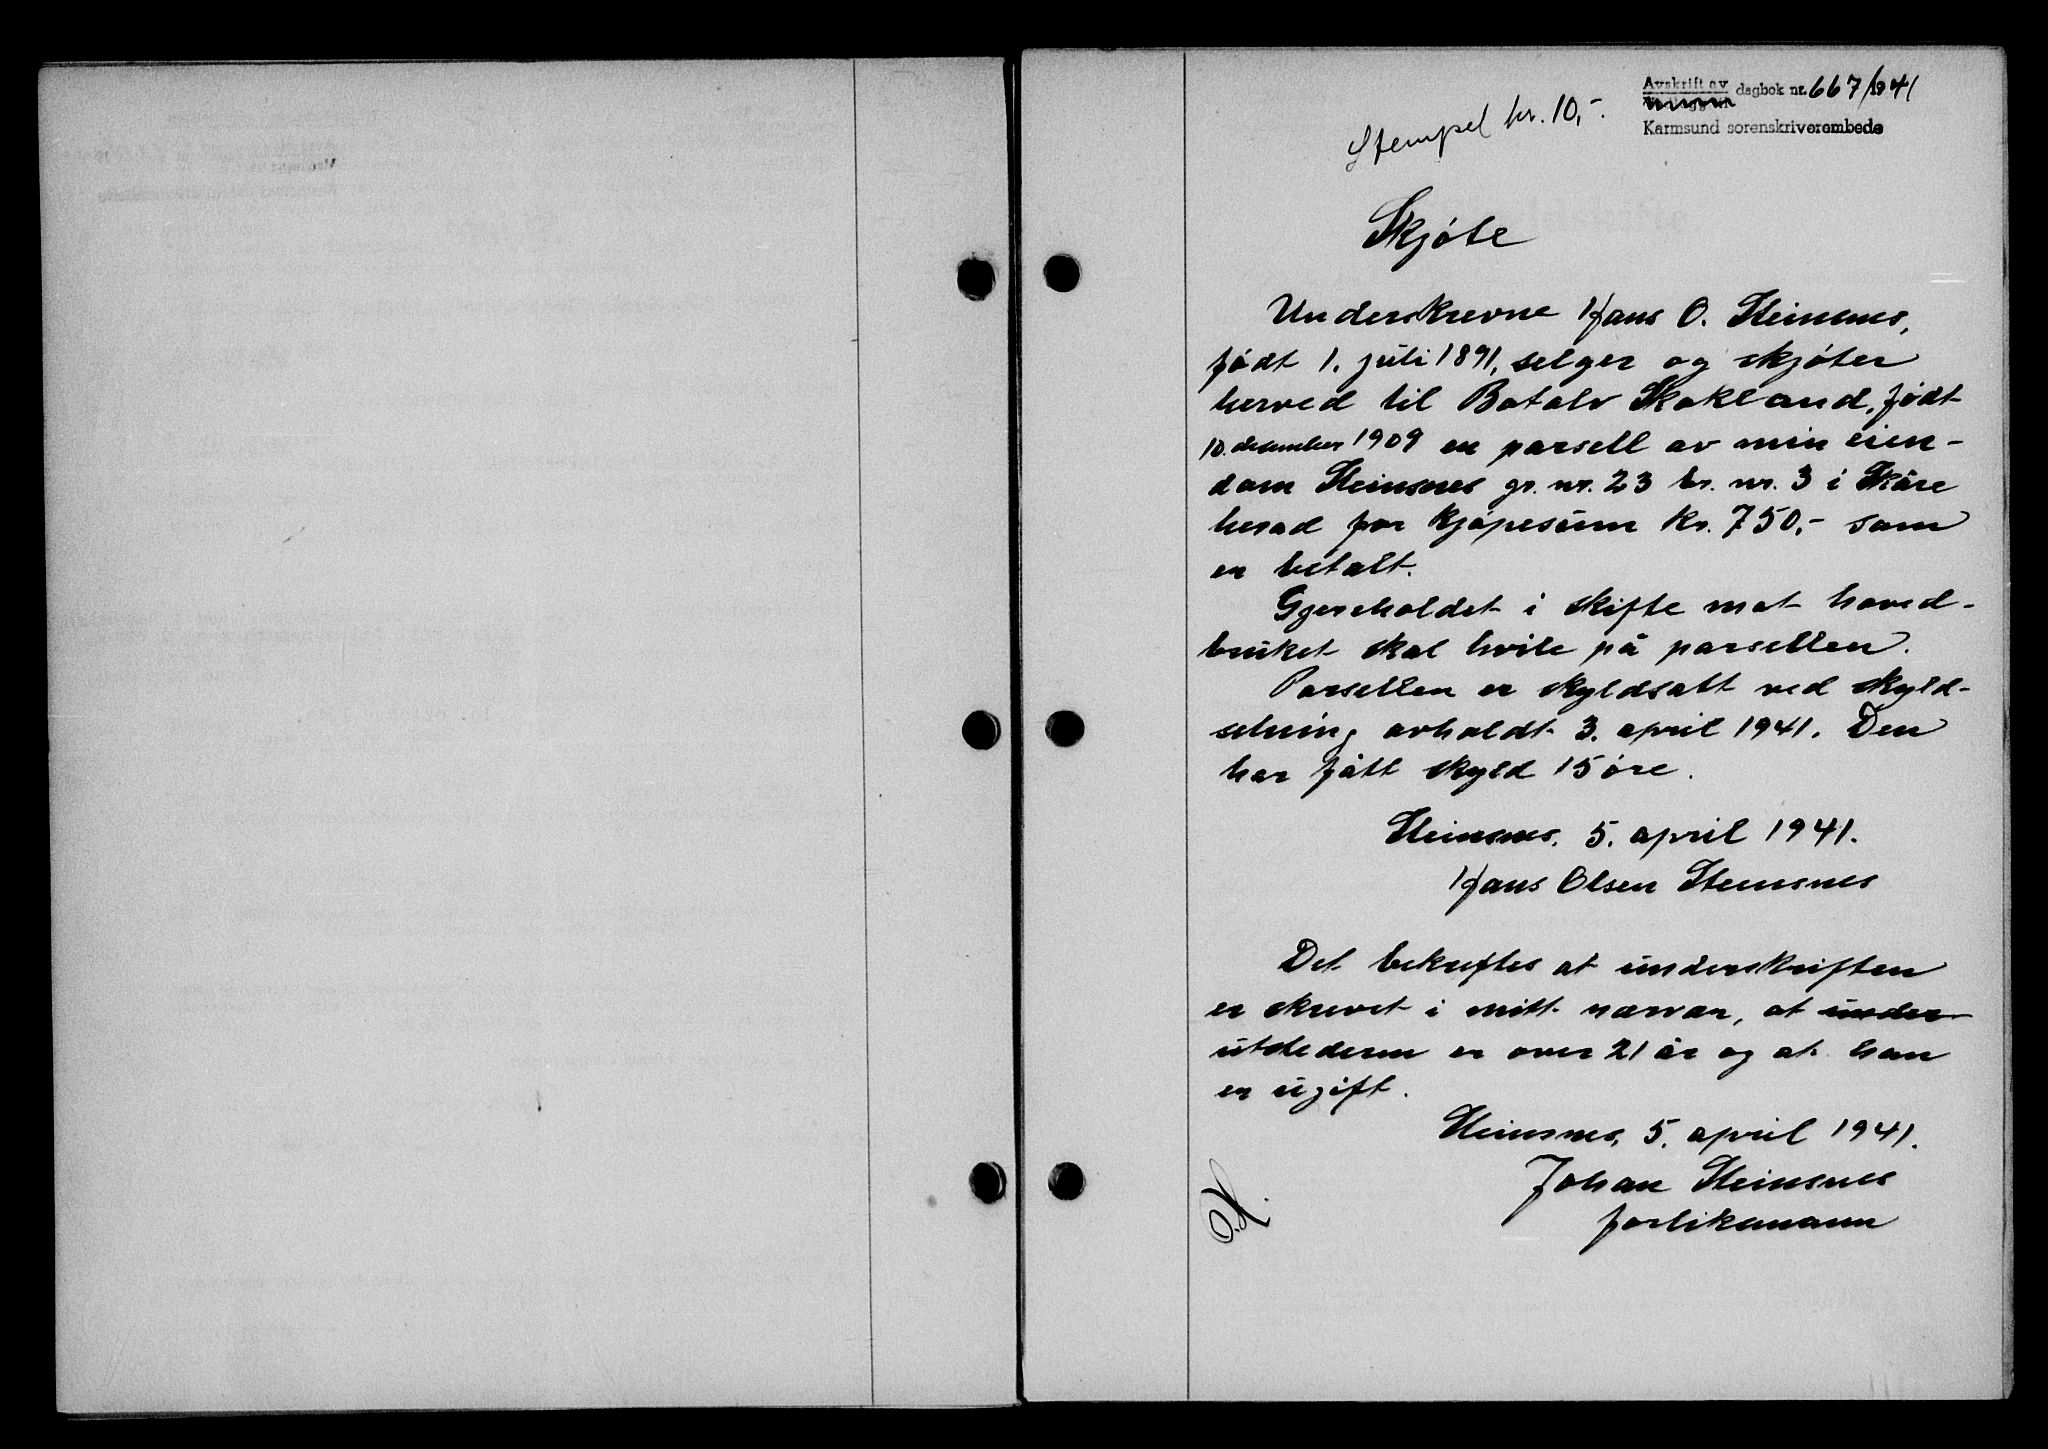 Avskrift av dagbok nr. 667/1941
Karmsund sorenskriverembede
Stempel kr. 10,-.
Skjøte
Underskrevne Hans O. Steinsnes,
født 1. juli 1891, selger og skjøter
herved til Botolv Skokland, født
10. desember 1909 en parsell av min eien-
dom Steinsnes gr. nr. 23 br. nr. 3 i Skåre
herad for kjøpesum kr. 750,- som
er betalt.
Gjereholdet i skifte mot hoved-
bruket skal hvile på parsellen.
Parsellen er skyldsatt ved skyld-
setning avholdt 3. april 1941. Den
har fått skyld 15 øre.
Steinsnes, 5. april 1941.
Hans Olsen Steinsnes
Det bekreftes at underskriften
er skrevet i mitt nærvær, at under
utstederen er over 21 år og at han
er ugift.
Steinsnes, 5. april 1941.
Johan Steinsnes
forliksmann